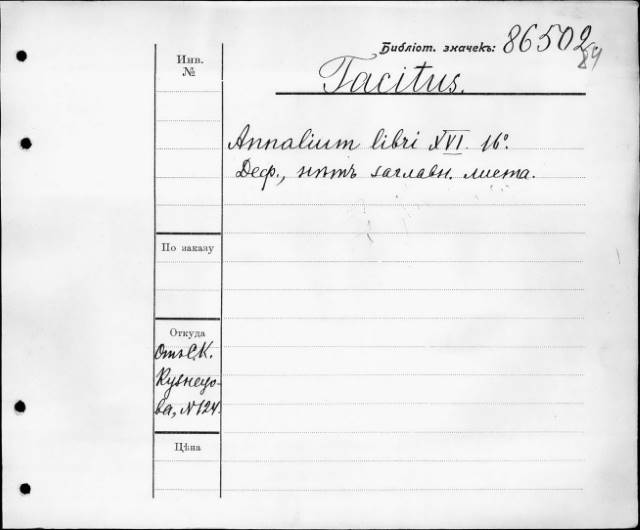 Библіот. значекъ: 86502.
89
Инв.
№
Tacitus.
Annalium libri XVI. 16°.
Деф., нѣтъ заглавн. листа.
По заказу
Откуда
Отъ С.К.
Кузнецо-
ва, №124.
Цѣна